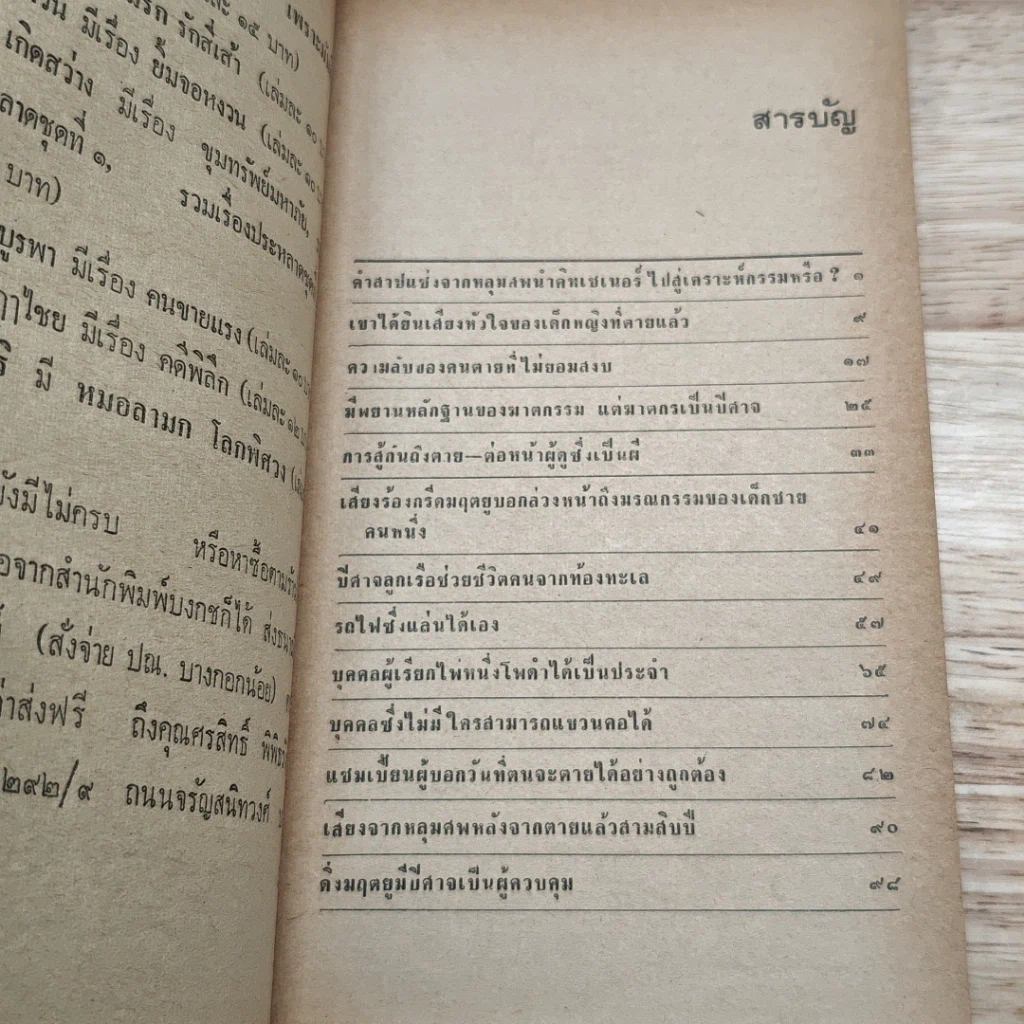 ละ ๑๕ บาท) เพราะฉัน
รัก รักสี่เส้า (เล่มละ ๑๐
มีเรื่อง ยิ้มจอหงวน (เล่มละ ๑๐
เกิดสว่าง มีเรื่อง ขุมทรัพย์มหาภัย,
ชุดที่ ๑, รวมเรื่องประหลาดชุดที่
บาท)
บูรพา มีเรื่อง คนขายแรง (เล่มละ ๑๐
ไชย มีเรื่อง คดีพิลึก (เล่มละ ๑๒
มี หมอลามก โลกพิศวง
ยังมีไม่ครบ หรือหาซื้อตามร้าน
จากสำนักพิมพ์บงกชก็ได้ ส่งธนา
(สั่งจ่าย ปณ. บางกอกน้อย)
ค่าส่งฟรี ถึงคุณศรสิทธิ์
๒๙๒/๙ ถนนจรัญสนิทวงศ์
สารบัญ
คำสาปแช่งจากหลุมศพนำคิทเชเนอร์ ไปสู่เคราะห์กรรมหรือ ? ๑
เขาได้ยินเสียงหัวใจของเด็กหญิงที่ตายแล้ว ๙
ความลับของคนตายที่ไม่ยอมสงบ ๑๗
มีพยานหลักฐานของฆาตกรรม แต่ฆาตกรเป็นปีศาจ ๒๕
การสู้กันถึงตาย—ต่อหน้าผู้ดูซึ่งเป็นผี ๓๓
เสียงร้องกรีดมฤตยูบอกล่วงหน้าถึงมรณกรรมของเด็กชาย
คนหนึ่ง ๔๑
ปีศาจลูกเรือช่วยชีวิตคนจากท้องทะเล ๔๙
รถไฟซึ่งแล่นได้เอง ๕๗
บุคคลผู้เรียกไพ่หนึ่งโพดำได้เป็นประจำ ๖๕
บุคคลซึ่งไม่มีใครสามารถแขวนคอได้ ๗๔
แชมเปี้ยนผู้บอกวันที่ตนจะตายได้อย่างถูกต้อง ๘๒
เสียงจากหลุมศพหลังจากตายแล้วสามสิบปี ๙๐
ดิ่งมฤตยูมีปีศาจเป็นผู้ควบคุม ๙๘